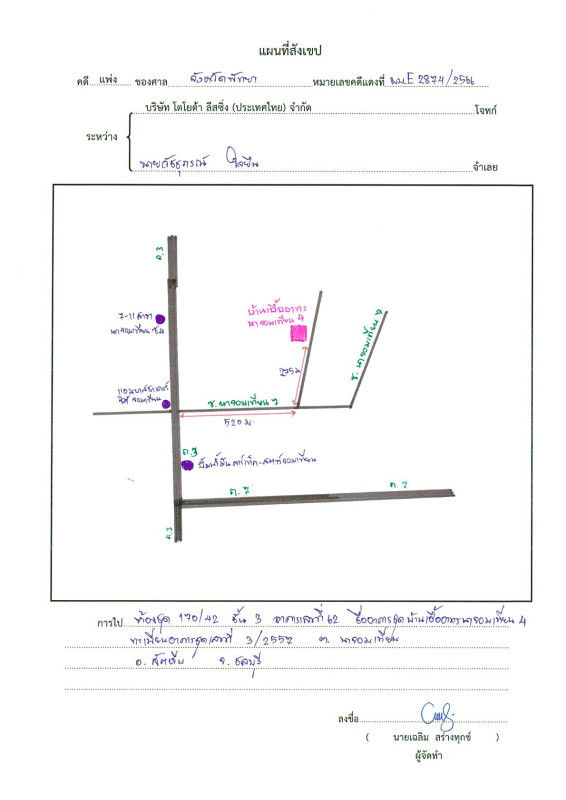 แผนที่สังเขป
คดี แพ่ง ของศาล จังหวัดพัทยา หมายเลขคดีแดงที่ ผบE 2874/2566
บริษัท โตโยต้า ลีสซิ่ง (ประเทศไทย) จำกัด โจทก์
ระหว่าง
จำเลย
ถ.3
7-11 สาขา
นาจอมเทียน ซ.4
บ้านเอื้ออาทร
นาจอมเทียน 4
ซ. นาจอมเทียน 7
235 ม
ซ. นาจอมเทียน 7
520 ม.
ถ.3
ถ. 7
ถ. 2
ถ.3
การไป ห้องชุด 170/42 ชั้น 3 อาคารเลขที่ 62 ชื่ออาคารชุด บ้านเอื้ออาทรนาจอมเทียน 4
ทะเบียนอาคารชุดเลขที่ 3/2557 ต. นาจอมเทียน
อ. สัตหีบ จ. ชลบุรี
ลงชื่อ
( นายเฉลิม สร้างทุกข์ )
ผู้จัดทำ